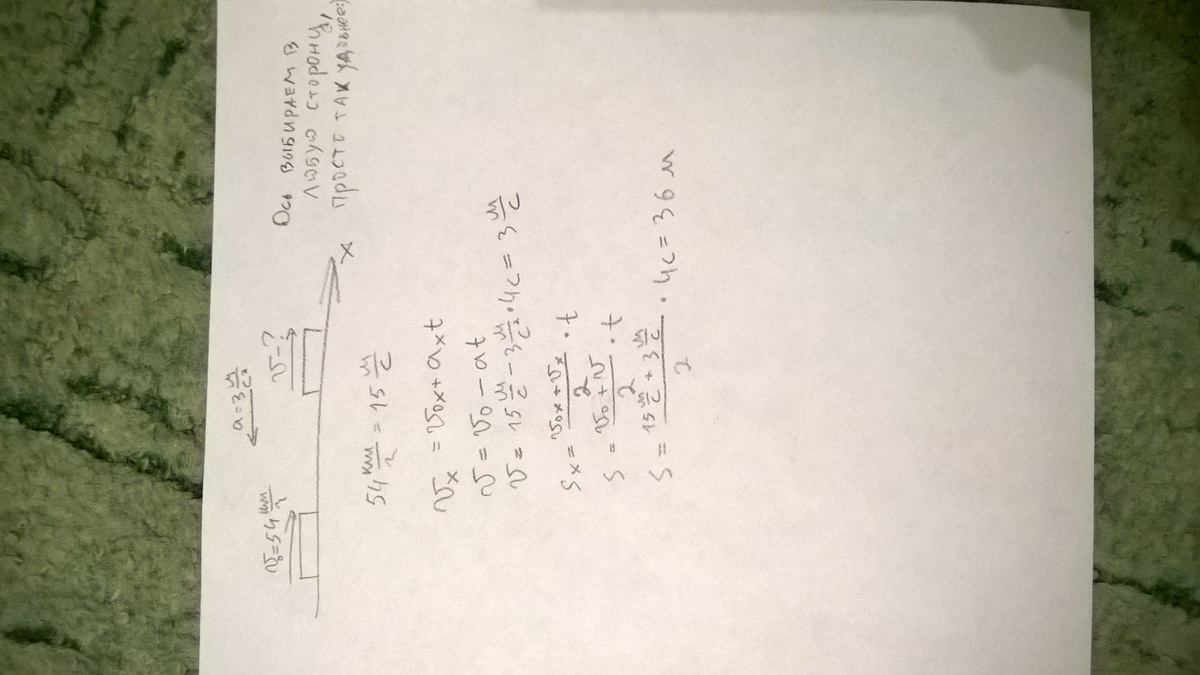 a = 3 м/с²
v₀ = 54 км/ч
v - ?
x
Ось выбираем в
любую сторону,
просто так удобнее:)
54 км/ч = 15 м/с
vₓ = v₀ₓ + aₓt
v = v₀ - at
v = 15 м/с - 3 м/с² · 4с = 3 м/с
sₓ = (v₀ₓ + vₓ)/2 · t
s = (v₀ + v)/2 · t
s = (15 м/с + 3 м/с)/2 · 4с = 36 м